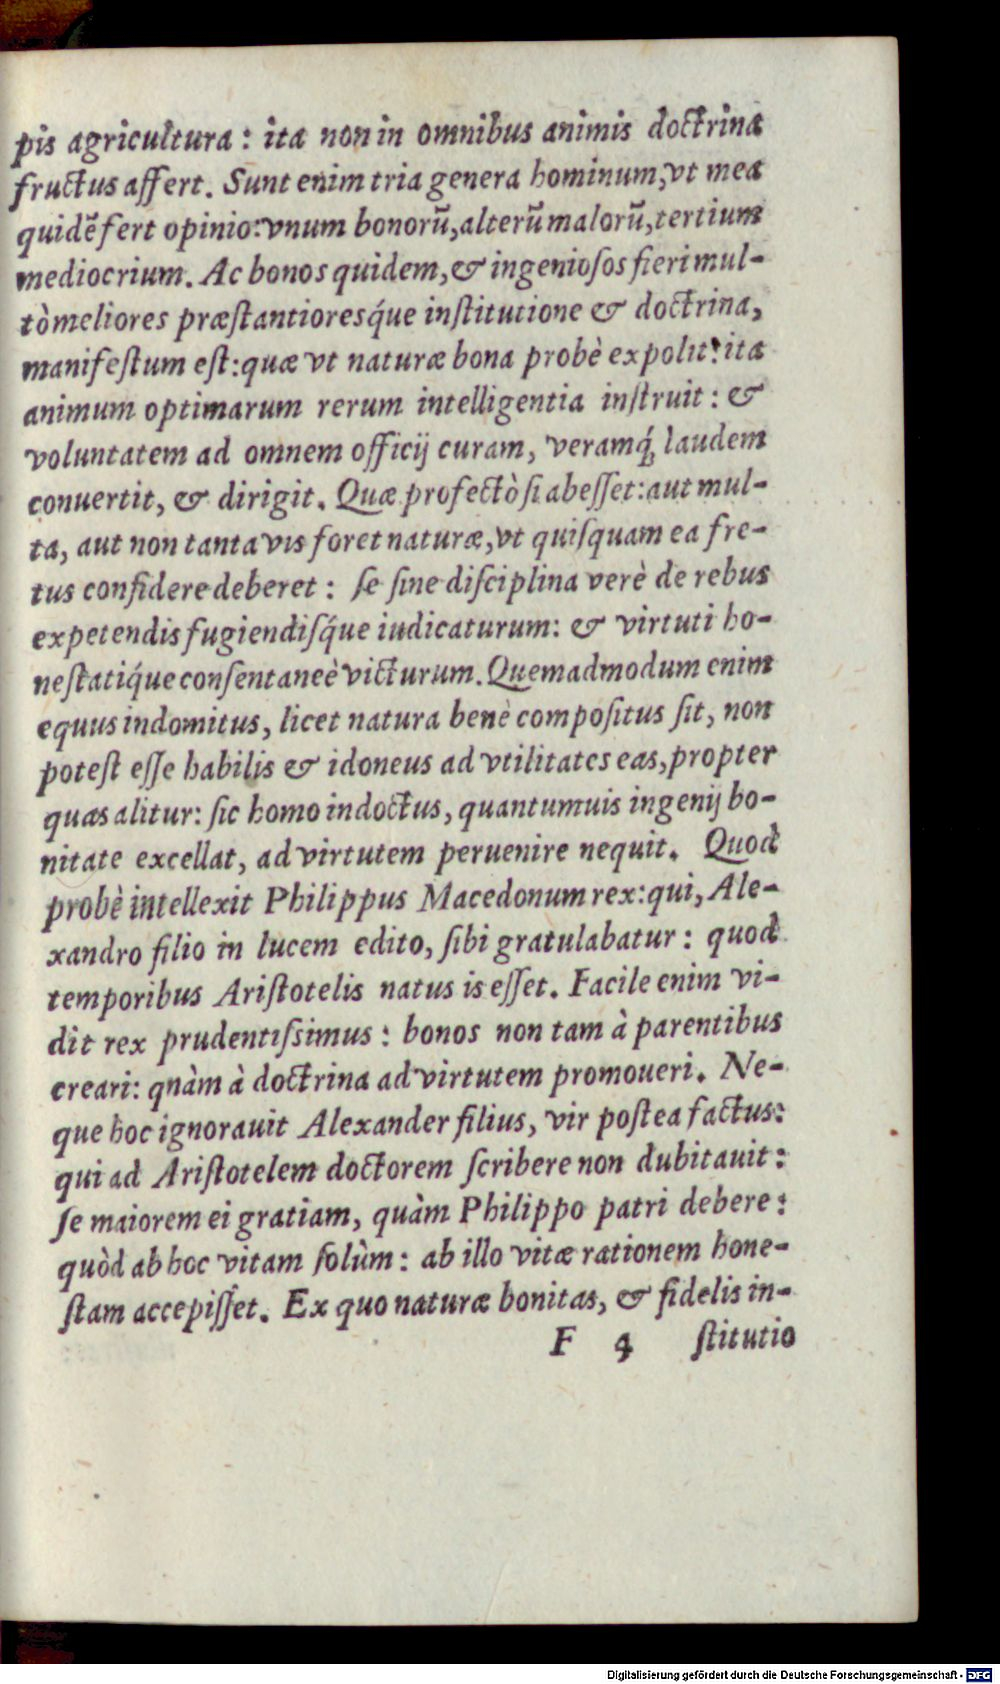 pis agricultura: ita non in omnibus animis doctrina
fructus affert. Sunt enim tria genera hominum, vt mea
quidẽ fert opinio: vnum bonorũ, alterũ malorũ, tertium
mediocrium. Ac bonos quidem, & ingeniosos fieri mul-
tò meliores præstantioresq́ue institutione & doctrina,
manifestum est: quæ vt naturæ bona probè expolit: ita
animum optimarum rerum intelligentia instruit: &
voluntatem ad omnem officij curam, veramq́; laudem
conuertit, & dirigit. Quæ profectò si abesset: aut mul-
ta, aut non tanta vis foret naturæ, vt quisquam ea fre-
tus confidere deberet: se sine disciplina verè de rebus
expetendis fugiendisq́ue iudicaturum: & virtuti ho-
nestatiq́ue consentaneè victurum. Quemadmodum enim
equus indomitus, licet natura benè compositus sit, non
potest esse habilis & idoneus ad vtilitates eas, propter
quas alitur: sic homo indoctus, quantumuis ingenij bo-
nitate excellat, ad virtutem peruenire nequit. Quod
probè intellexit Philippus Macedonum rex: qui, Ale-
xandro filio in lucem edito, sibi gratulabatur: quod
temporibus Aristotelis natus is esset. Facile enim vi-
dit rex prudentissimus: bonos non tam à parentibus
creari: quàm à doctrina ad virtutem promoueri. Ne-
que hoc ignorauit Alexander filius, vir postea factus:
qui ad Aristotelem doctorem scribere non dubitauit:
se maiorem ei gratiam, quàm Philippo patri debere:
quòd ab hoc vitam solùm: ab illo vitæ rationem hone-
stam accepisset. Ex quo naturæ bonitas, & fidelis in-
F 4 stitutio
Digitalisierung gefördert durch die Deutsche Forschungsgemeinschaft - DFG